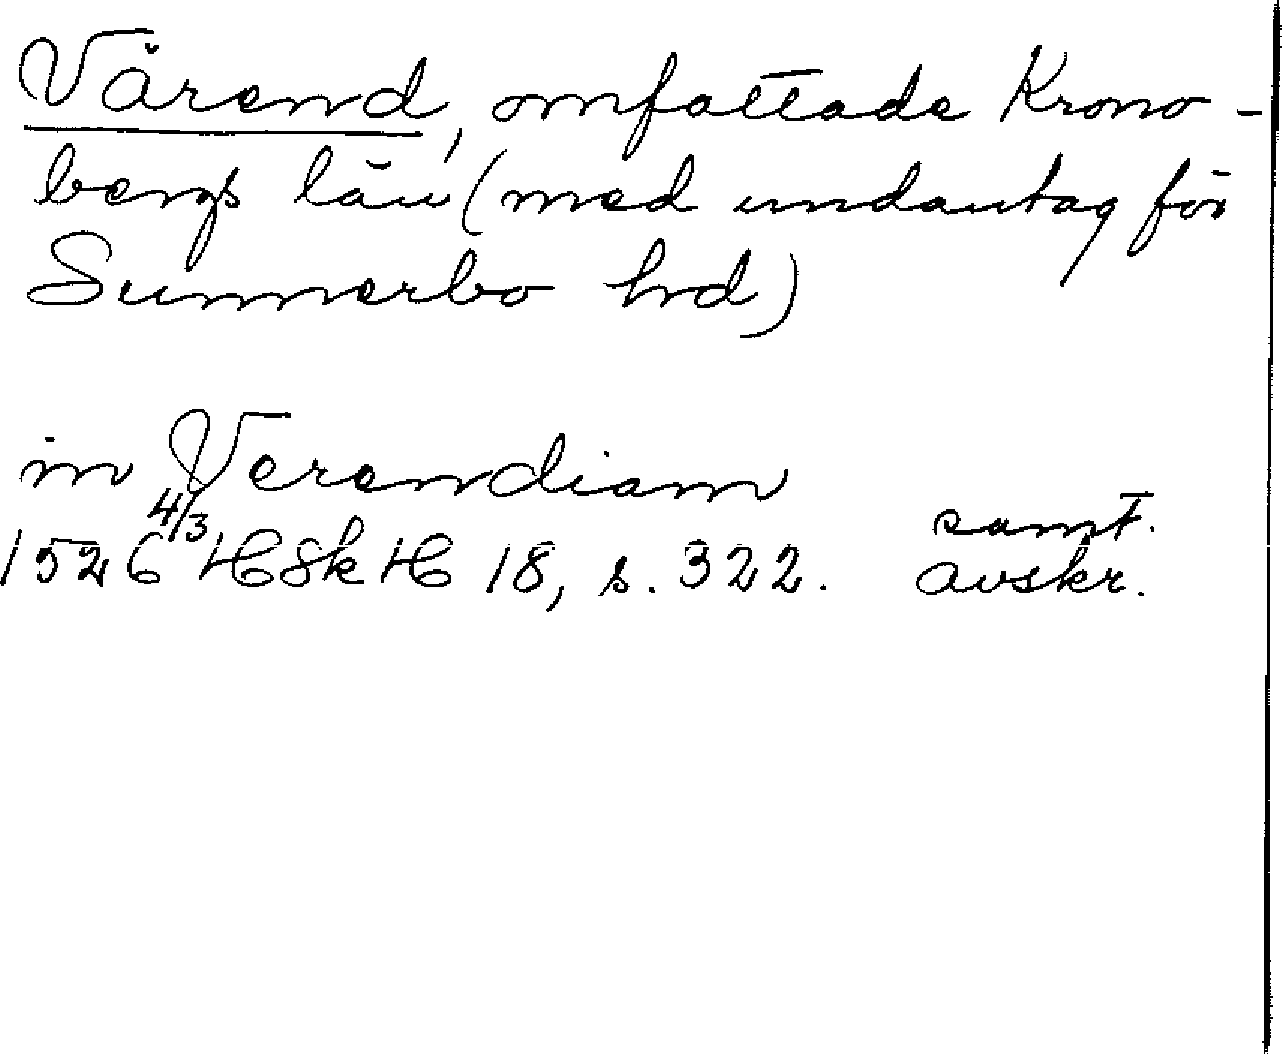 Värend, omfattade Krono-
bergs län (med undantag för
Sunnerbo hd)
in Verendiam
1526 4/3 HSkH 18, s. 322.
samt.
avskr.